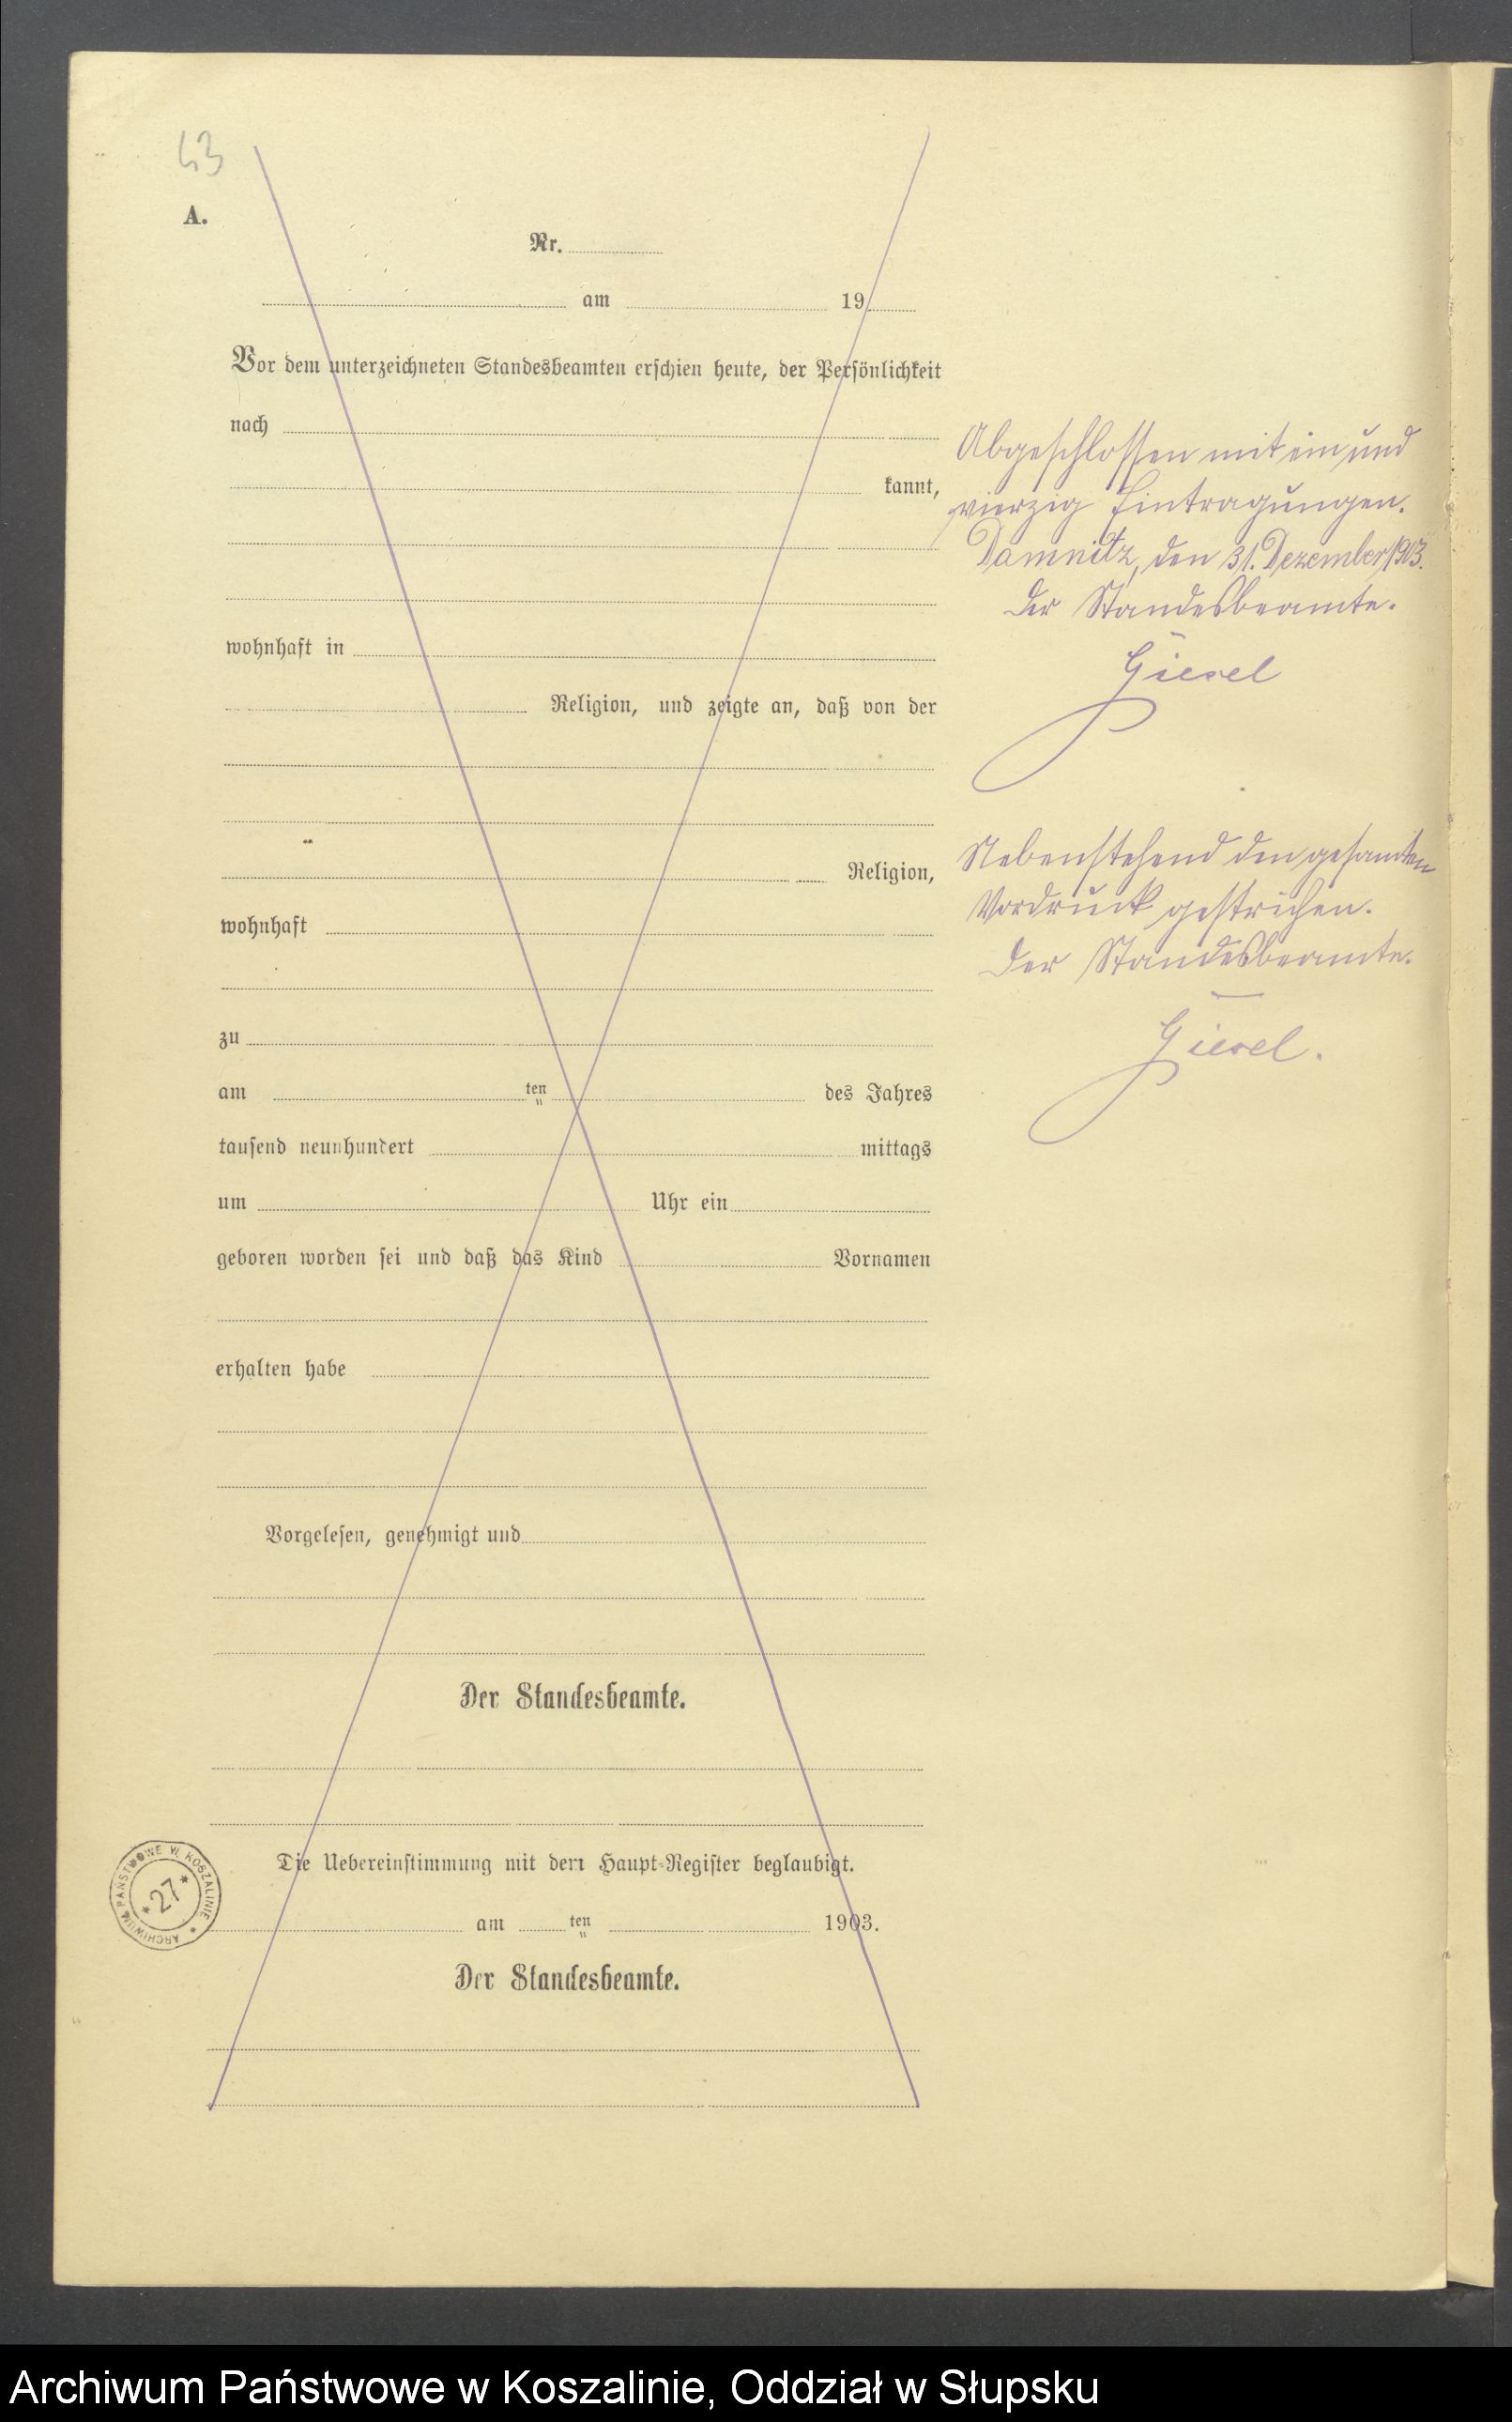 43
A.
Nr.
am 19
Vor dem unterzeichneten Standesbeamten erschien heute, der Persönlichkeit
nach
kannt,
wohnhaft in
Religion, und zeigte an, daß von der
Religion,
wohnhaft
zu
am ten des Jahres
tausend neunhundert mittags
um Uhr ein
geboren worden sei und daß das Kind Vornamen
erhalten habe
Vorgelesen, genehmigt und
Der Standesbeamte.
Die Uebereinstimmung mit dem Haupt-Register beglaubigt.
am ten 1903.
Der Standesbeamte.
Abgeschlossen mit ein und
vierzig Eintragungen.
Damnitz, den 31. Dezember 1903.
Der Standesbeamte.
Giesel
Nebenstehend den gesamten
Vordruck gestrichen.
Der Standesbeamte.
Giesel.
ARCHIWUM PAŃSTWOWE W KOSZALINIE
* 27 *
Archiwum Państwowe w Koszalinie, Oddział w Słupsku